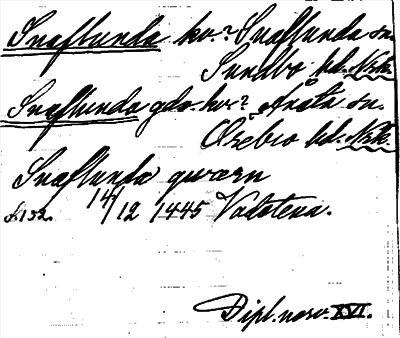 Snaflunda kv.? Snaflunda sn.
Sundbo hd. Nrk.
Snaflunda gda. kv.? Ånsta sn.
Örebro hd. Nrk.
Snaflunda qwern
s. 132. 14/12 1445 Vadstena.
Dipl. norv. XVI.